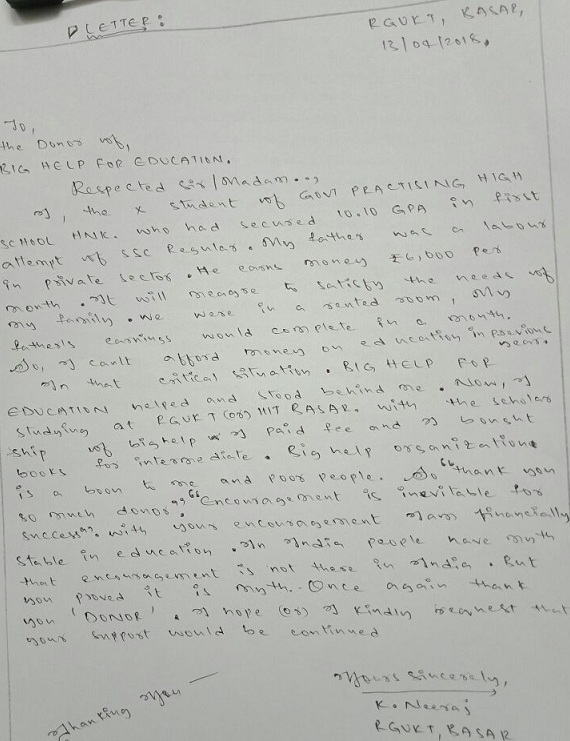 LETTER:
RGUKT, BASAR,
13/04/2018.
To,
the Donor of,
BIG HELP FOR EDUCATION.
Respected sir/Madam...,
I, the x student of GOVT PRACTISING HIGH
SCHOOL HNK. who had secured 10.10 GPA in first
attempt of SSC Regular. My father was a labour
in private sector. He earns money ₹6,000 per
month. It will meagre to satisfy the needs of
my family. We were in a rented room, My
father's earnings would complete in a month.
So, I can't afford money on education in previous
year.
In that critical situation. BIG HELP FOR
EDUCATION helped and stood behind me. Now, I
studying at RGUKT (or) IIIT BASAR. with the scholar
ship of bighelp I paid fee and I bought
books for intermediate. Big help organization
is a boon to me and poor people. So "thank you
so much donor". "Encouragement is inevitable for
success". with your encouragement I am financially
stable in education. In India people have myth
that encouragement is not there in India. But
you proved it is myth.. Once again thank
you 'DONOR'. I hope (or) I kindly request that
your support would be continued
Thanking you
Yours sincerely,
K. Neeraj
RGUKT, BASAR